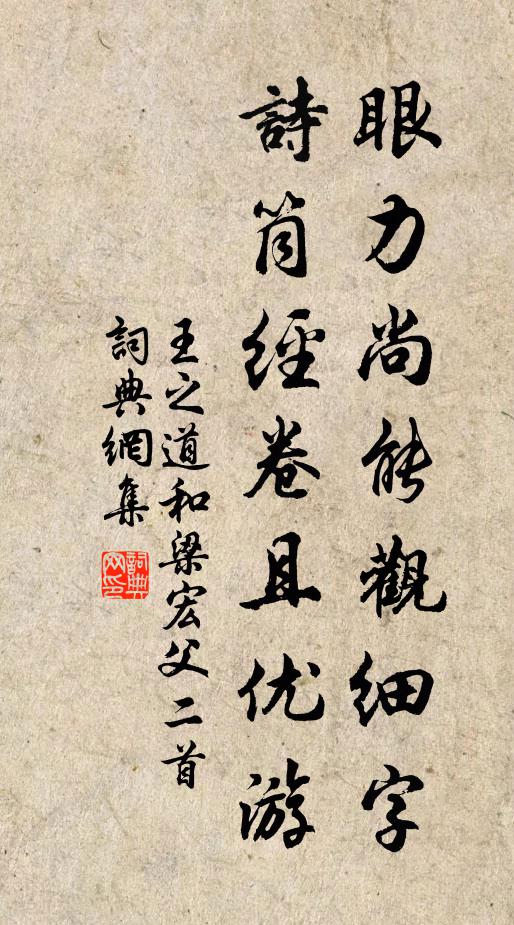 眼力尚能觀細字
詩筒經卷且优游
王之道和梁宏父二首
詞典網集
詞典网印